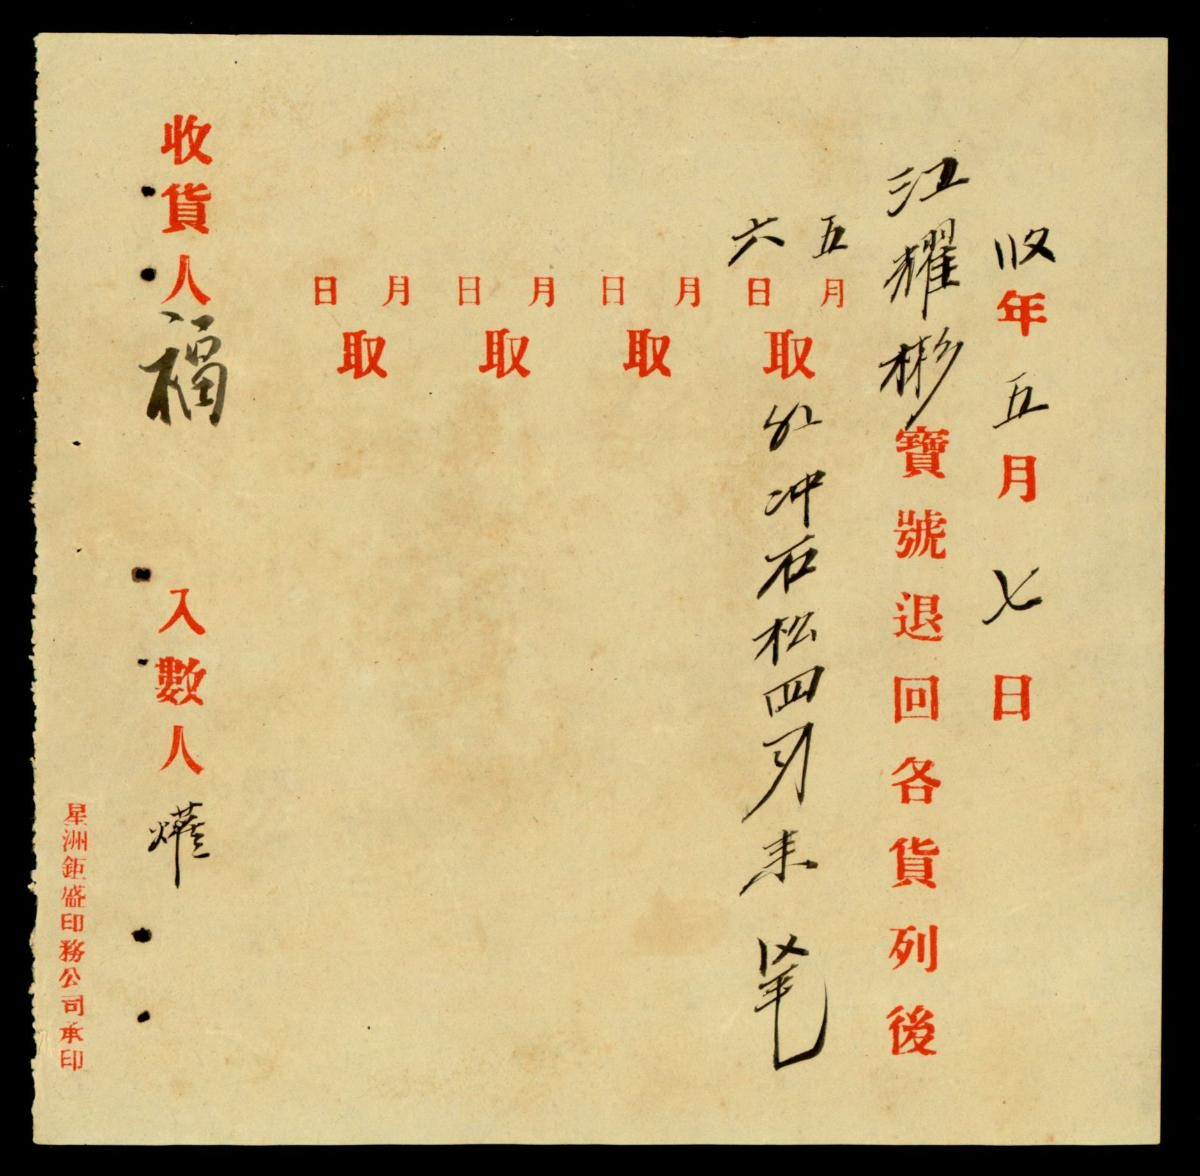 年五月七日
江耀彬寶號退回各貨列後
五月六日取
冲石松四
月日取
月日取
月日取
收貨人福
入數人燁
星洲鉅盛印務公司承印